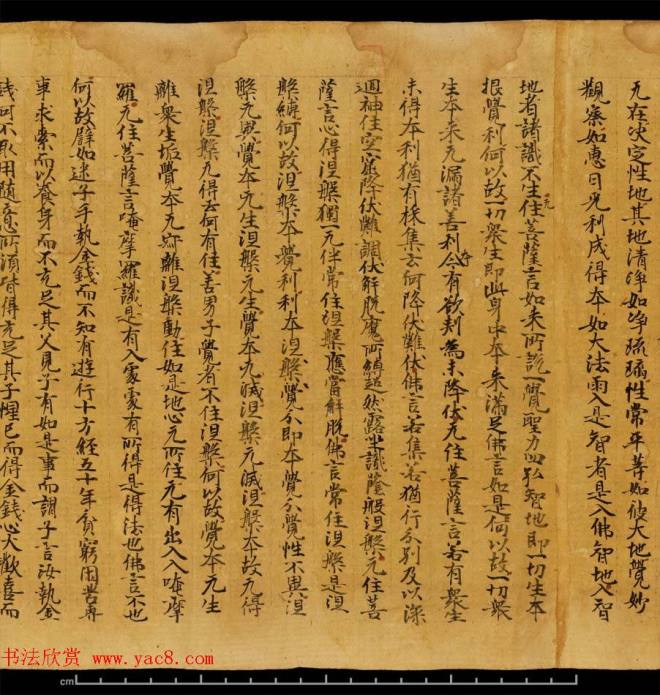 无在决定性地其地清净如净琉璃性常平等如彼大地覺妙
觀察如惠日光利成得本如大法雨入是智者是入佛智地入智
地者諸識不生无住菩薩言如来所説一覺聖力四弘智地即一切生本
根覺利何以故一切衆生即此身中本来滿足佛言如是何以故一切衆
生本来无漏諸善利本今有欲刾為未降伏无住菩薩言若有衆生
未得本利猶有採集云何降伏難伏佛言若集若猶行分别及以深
迴神住空窟降伏難調伏解脱魔所縛超然露坐識陰般涅槃无住菩
薩言心得涅槃獨一无伴常住涅槃應當解脱佛言常住涅槃是涅
槃縛何以故涅槃本覺利利本涅槃覺分即本覺分覺性不異涅
槃无異覺本无生涅槃无生覺本无滅涅槃无滅涅槃本故无得
涅槃涅槃无得云何有住善男子覺者不住涅槃何以故覺本无生
離衆生垢覺本无寂離涅槃動住如是地心无所住无有出入入唵摩
羅无住菩薩言唵摩羅識是有入處處有所得是得法也佛言不也
何以故譬如迷子手執金錢而不知有遊行十方經五十年貧窮困苦專
事求索而以養身而不充足其父見子有如是事而謂子言汝執金
錢何不取用随意所須皆得充足其子惺已而得金錢心大歡喜而
书法欣赏 www.yac8.com
cm